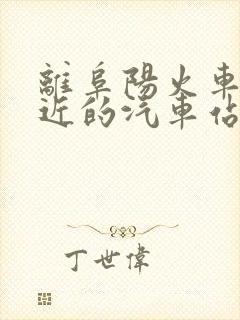 離阜陽火車
近的汽車佔
丁世偉